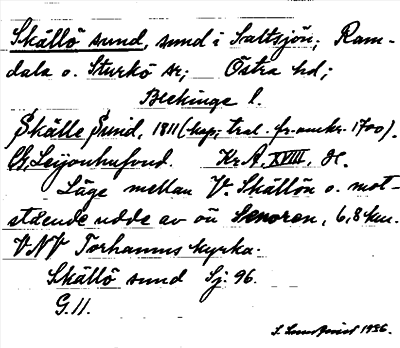 Skällö sund, sund i Saltsjön; Ram-
dala o. Sturkö sr; Östra hd;
Blekinge l.
Skälle Sund, 1811 (kop; tral. fr. omkr. 1700).
G. Leijonhufvud. Kr. A. XVIII,
Läge mellan V. Skällön o. mot-
stående udde av ön Senoren, 6,8 km.
VNV Torhamns kyrka.
Skällö sund Sj. 96.
G. 11.
1926.